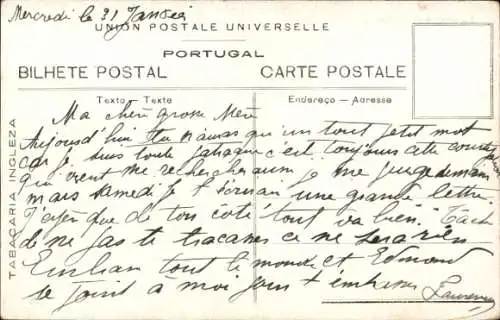 Mercredi le 31 Janvier
UNION POSTALE UNIVERSELLE
PORTUGAL
BILHETE POSTAL CARTE POSTALE
Texto — Texte Endereço — Adresse
TABACARIA INGLEZA
Ma chère grosse Mère
Aujourd'hui tu n'auras qu'un tout petit mot
car je suis toute c'est toujours cette
qui vient me je me demain
mais samedi je t'écrirai une grande lettre.
J'espère que de ton coté tout va bien. Tâche
de ne pas te tracasser ce ne sera rien
tout le monde et Edmond
se joint a moi pour t'embrasser
Laurence